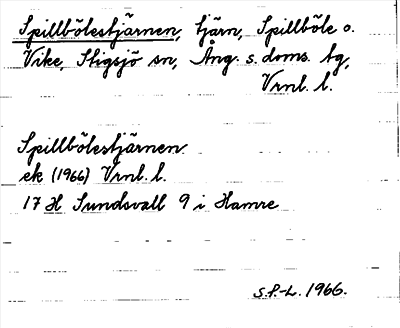 Spillbölestjärnen, tjärn, Spillböle o.
Vike, Stigsjö sn, Ång. s. doms. tg,
Vrnl. l.
Spillbölestjärnen
ek (1966) Vrnl. l.
17 H Sundsvall 9 i Hamre
S.P.-L. 1966.